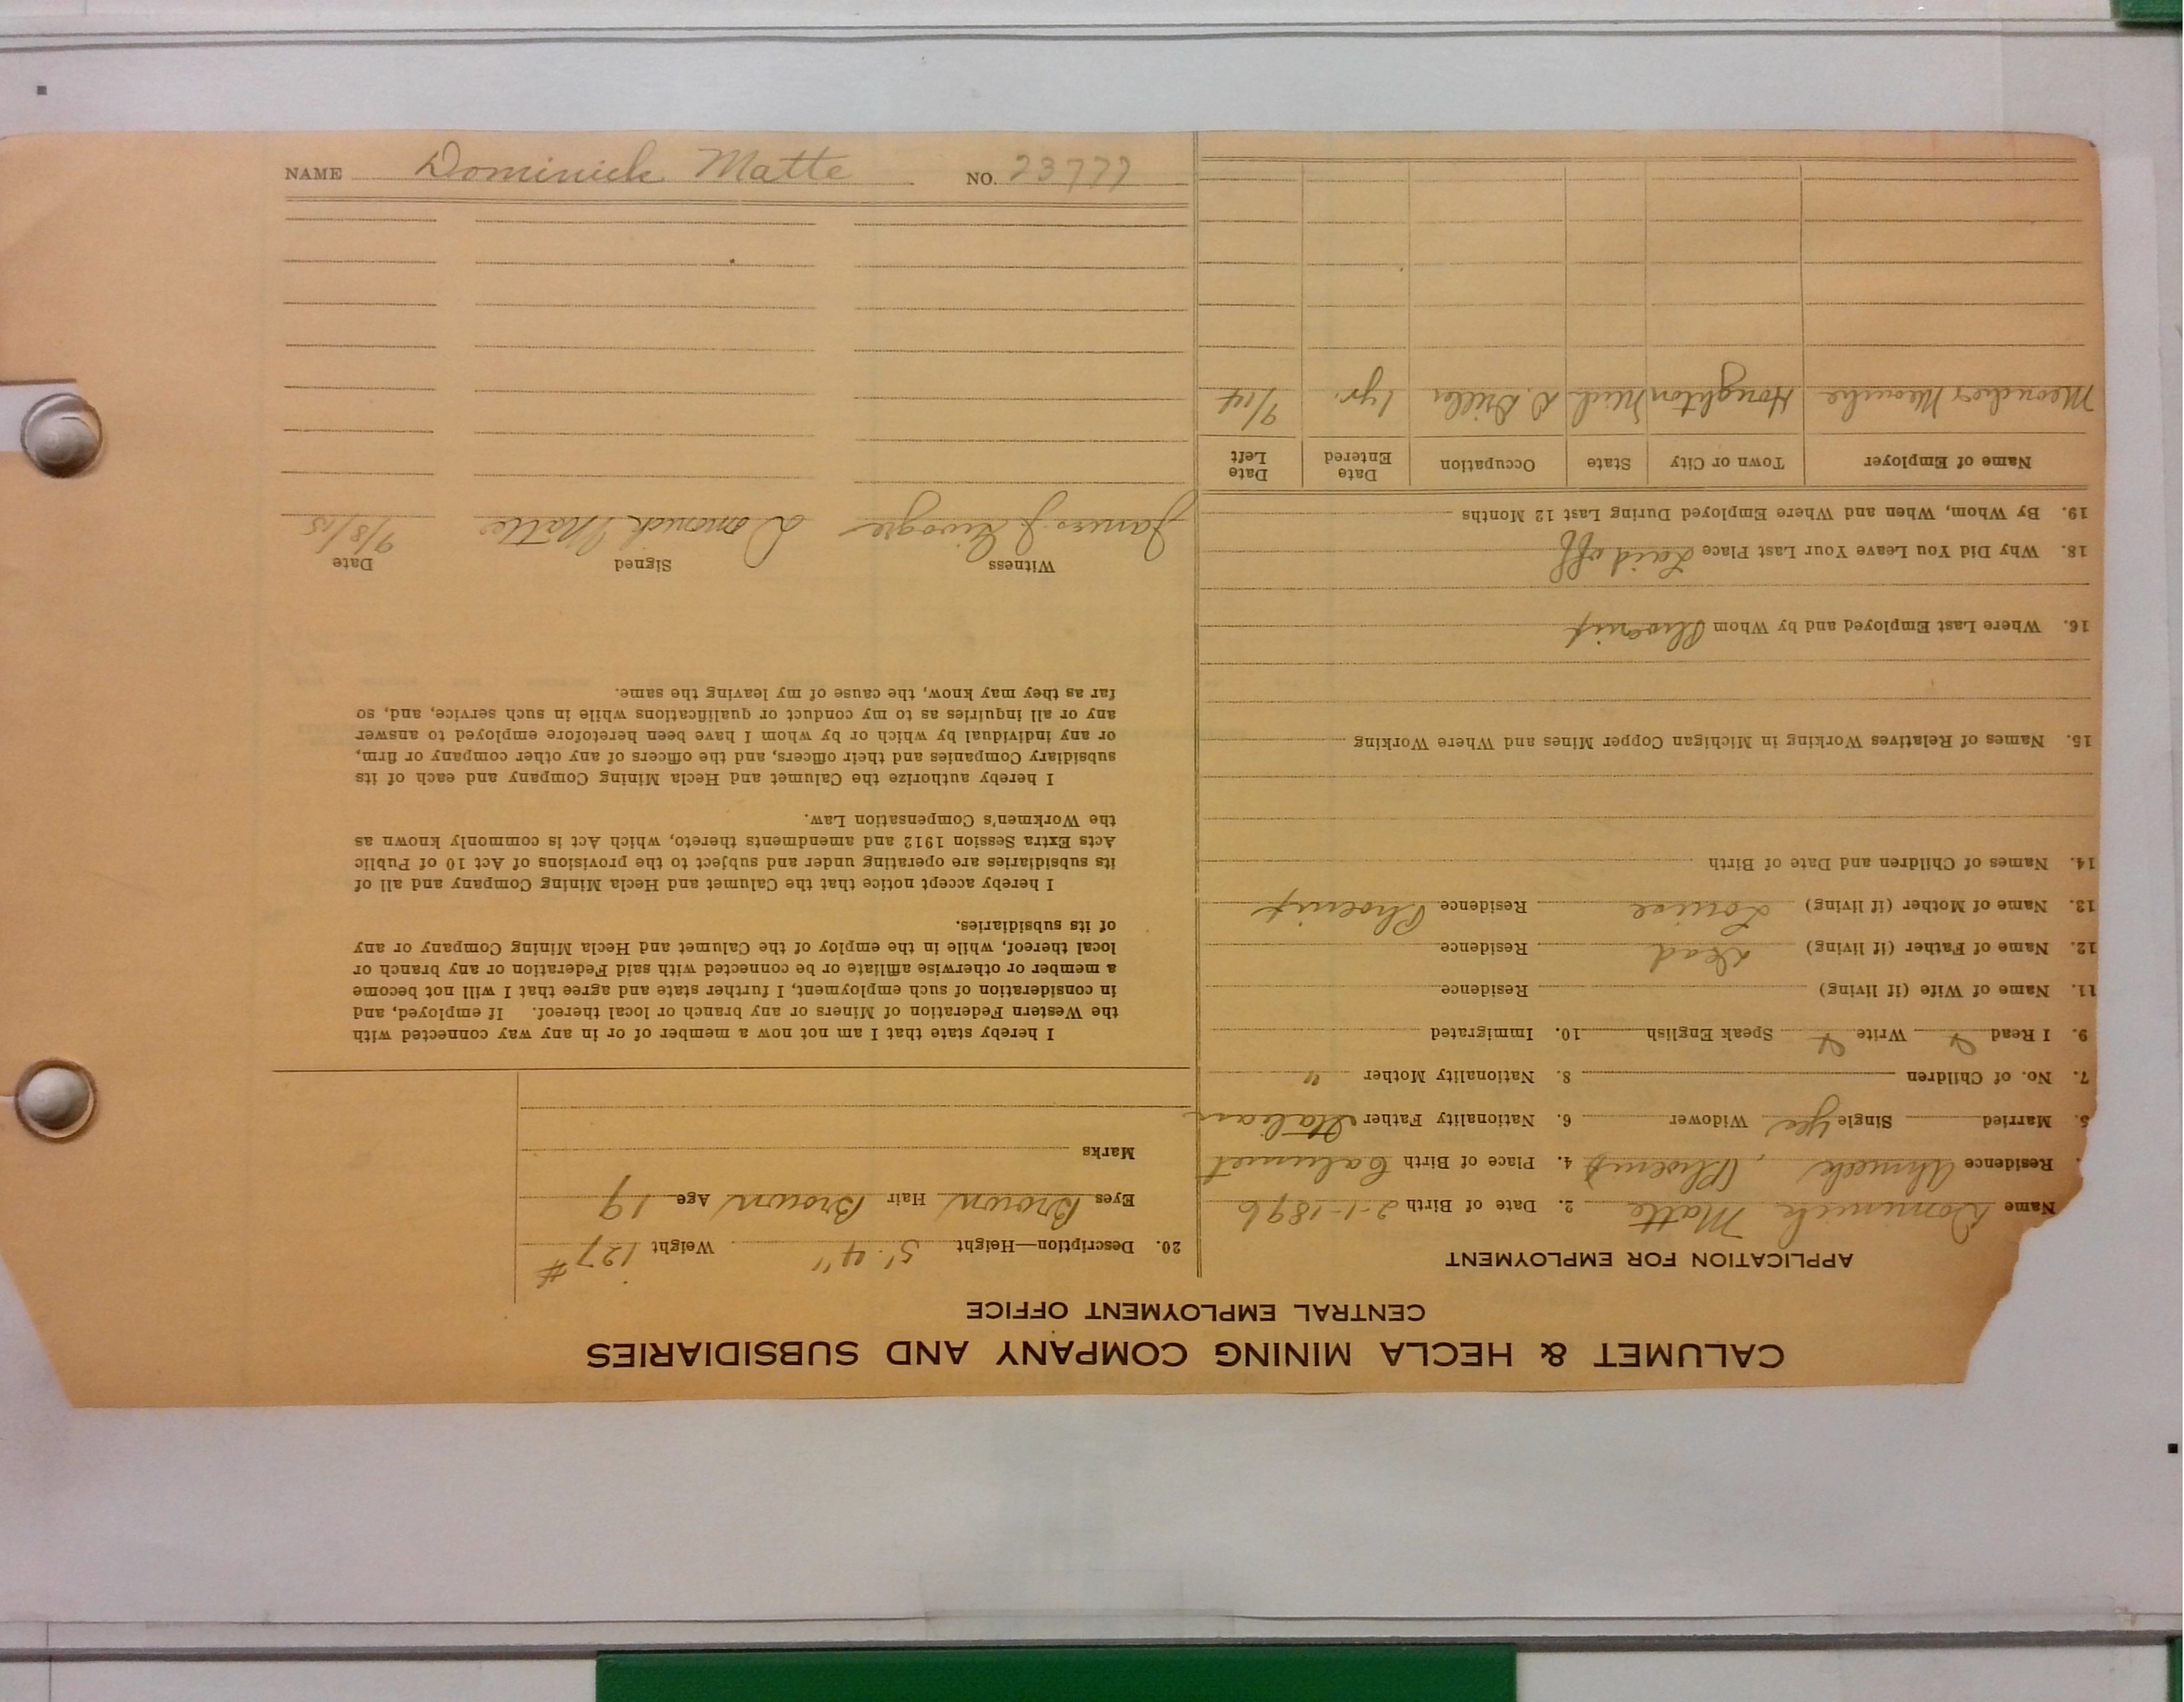 NAME Dominick Matte NO. 23777
CALUMET & HECLA MINING COMPANY AND SUBSIDIARIES
CENTRAL EMPLOYMENT OFFICE
APPLICATION FOR EMPLOYMENT
Name Dominick Matte 2. Date of Birth 2-1-1896
Residence Ahmeek, Phoenix 4. Place of Birth Calumet
5. Married Single Yes Widower 6. Nationality Father Italian
7. No. of Children 8. Nationality Mother "
9. I Read Write Speak English 10. Immigrated
11. Name of Wife (if living) Residence
12. Name of Father (if living) Dead Residence
13. Name of Mother (if living) Louise Residence Phoenix
14. Names of Children and Date of Birth
15. Names of Relatives Working in Michigan Copper Mines and Where Working
16. Where Last Employed and by Whom Phoenix
18. Why Did You Leave Your Last Place Laid off
19. By Whom, When and Where Employed During Last 12 Months
Name of Employer Town or City State Occupation Date Entered Date Left
Houghton Mich D. Driller 1 yr. 9/14
20. Description—Height 5' 4" Weight 127 #
Eyes Brown Hair Brown Age 19
Marks
I hereby state that I am not now a member of or in any way connected with
the Western Federation of Miners or any branch or local thereof. If employed, and
in consideration of such employment, I further state and agree that I will not become
a member or otherwise affiliate or be connected with said Federation or any branch or
local thereof, while in the employ of the Calumet and Hecla Mining Company or any
of its subsidiaries.
I hereby accept notice that the Calumet and Hecla Mining Company and all of
its subsidiaries are operating under and subject to the provisions of Act 10 of Public
Acts Extra Session 1912 and amendments thereto, which Act is commonly known as
the Workmen's Compensation Law.
I hereby authorize the Calumet and Hecla Mining Company and each of its
subsidiary Companies and their officers, and the officers of any other company or firm,
or any individual by which or by whom I have been heretofore employed to answer
any or all inquiries as to my conduct or qualifications while in such service, and, so
far as they may know, the cause of my leaving the same.
Witness Signed Date
James J. Dominick Matte 9/8/15